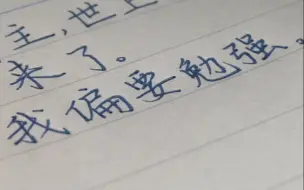 主,世上
来了。
我偏要勉强。